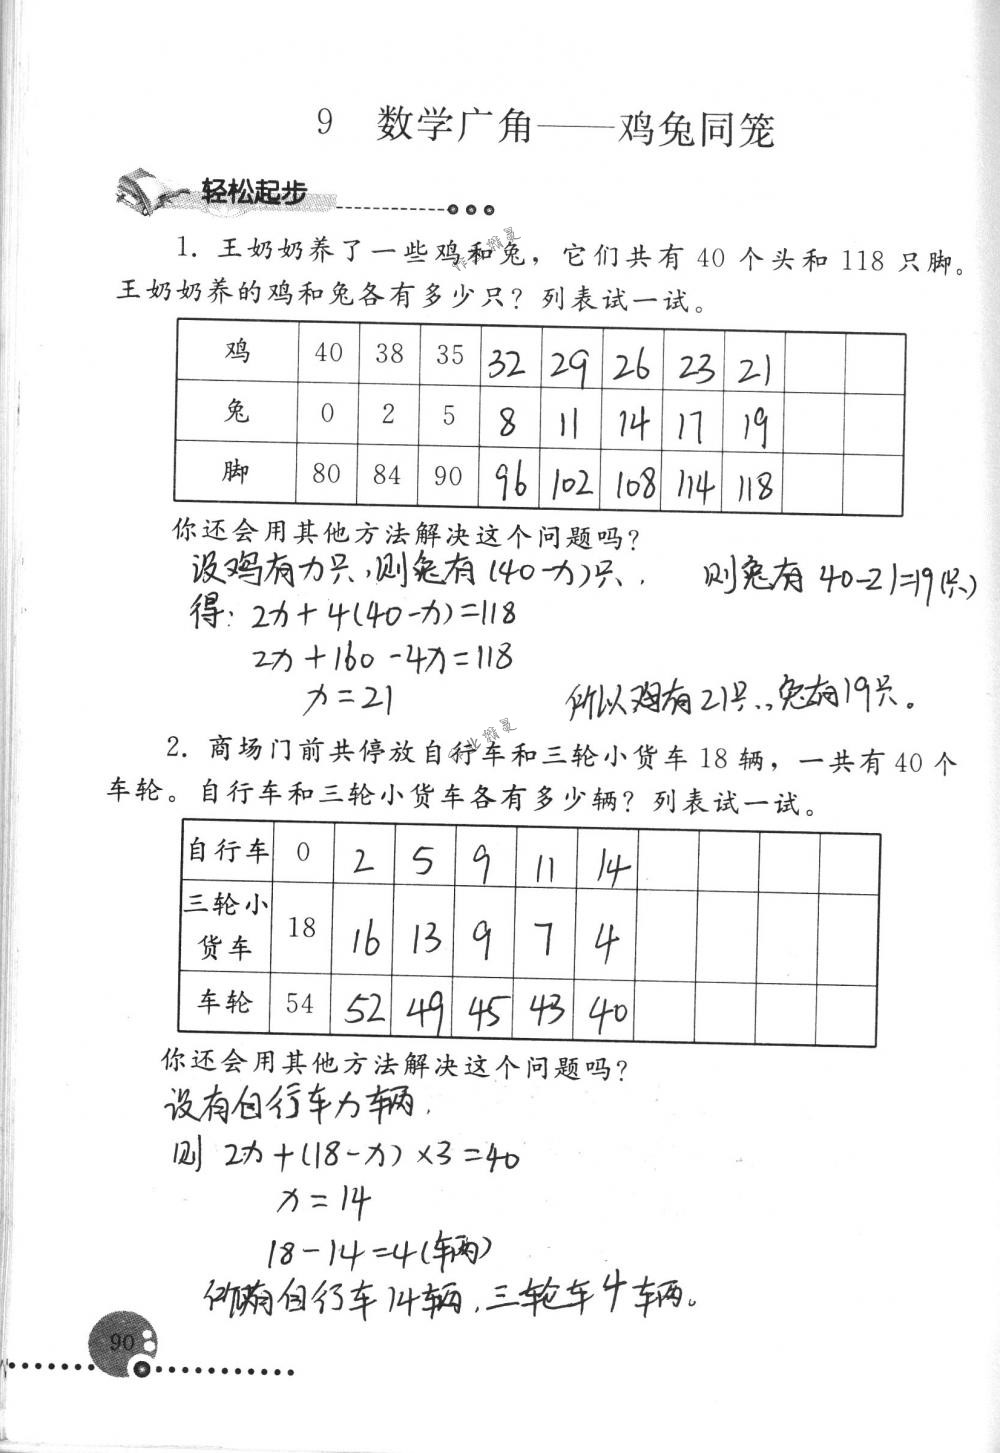 9 数学广角——鸡兔同笼
轻松起步
1. 王奶奶养了一些鸡和兔，它们共有 40 个头和 118 只脚。
王奶奶养的鸡和兔各有多少只？列表试一试。
鸡 40 38 35 32 29 26 23 21
兔 0 2 5 8 11 14 17 19
脚 80 84 90 96 102 108 114 118
你还会用其他方法解决这个问题吗？
设鸡有x只，则兔有(40-x)只. 则兔有40-21=19(只)
得: 2x+4(40-x)=118
2x+160-4x=118
x=21 所以鸡有21只，兔有19只。
2. 商场门前共停放自行车和三轮小货车 18 辆，一共有 40 个
车轮。自行车和三轮小货车各有多少辆？列表试一试。
自行车 0 2 5 9 11 14
三轮小
货车 18 16 13 9 7 4
车轮 54 52 49 45 43 40
你还会用其他方法解决这个问题吗？
设有自行车x辆.
则 2x+(18-x)×3=40
x=14
18-14=4(辆)
所有自行车14辆,三轮车4辆。
90